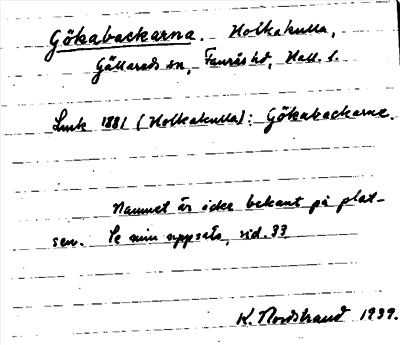 Gökabackarna. Holkakulla,
Gällareds sn, Faurås hd, Hall. l.
Lmk 1881 (Holkakulla): Gökabackarne.
Namnet är icke bekant på plat-
sen. Se min uppsats, sid. 33
K. Nordstrand 1939.